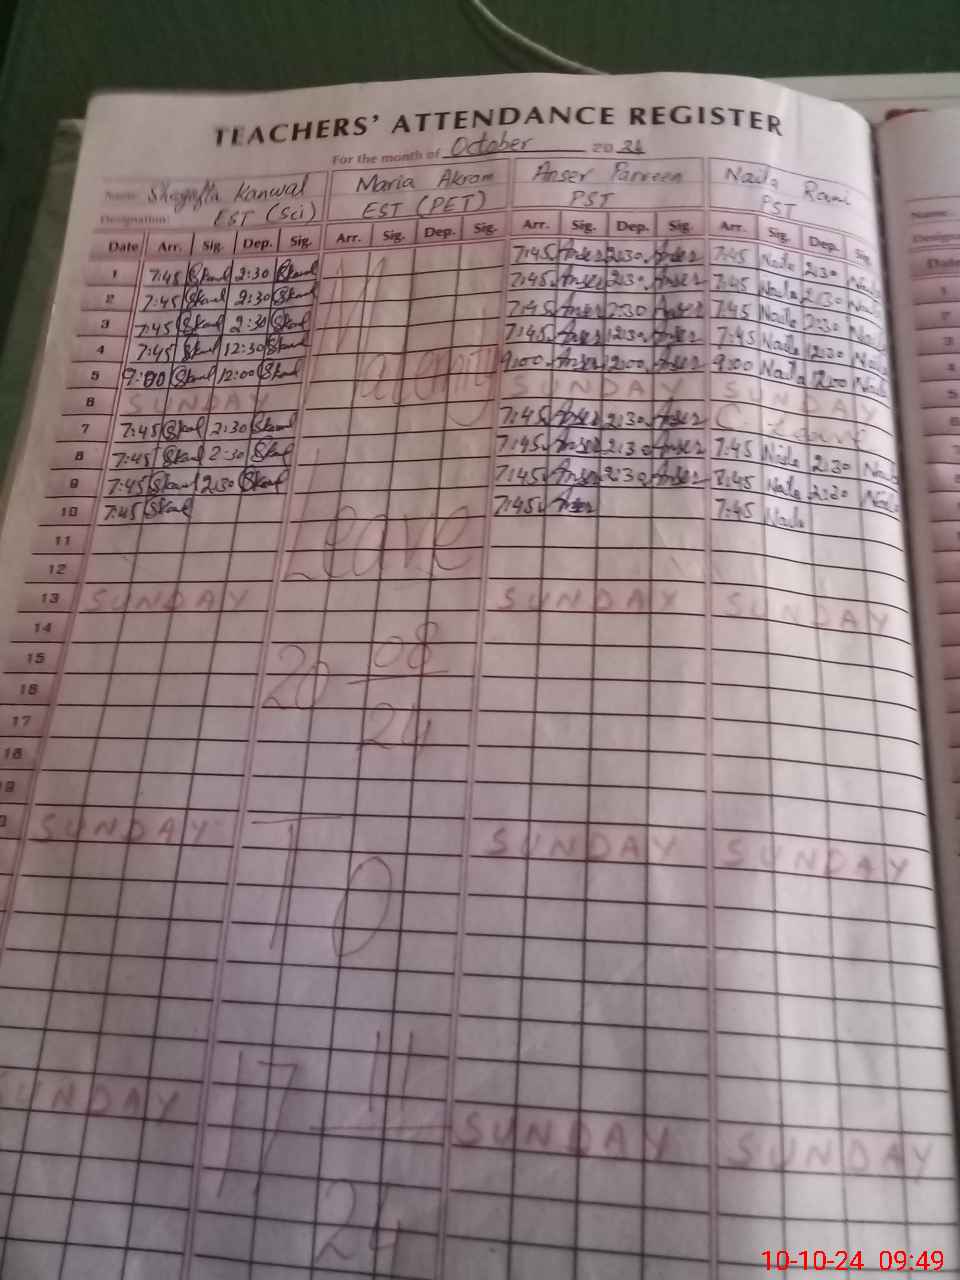 TEACHERS' ATTENDANCE REGISTER
For the month of October 20 24
Name: Shagufta Kanwal Maria Akram Anser Parveen Naila Rani
Designation: EST (Sci) EST (PET) PST PST
Date Arr. Sig. Dep. Sig. Arr. Sig. Dep. Sig. Arr. Sig. Dep. Sig. Arr. Sig. Dep. Sig.
1 7:45 Skanl 2:30 Skanl 7:45 Anser 2:30 Anser 7:45 Naila 2:30 Naila
2 7:45 Skanl 2:30 Skanl 7:45 Anser 2:30 Anser 7:45 Naila 2:30 Naila
3 7:45 Skanl 2:30 Skanl 7:45 Anser 2:30 Anser 7:45 Naila 2:30 Naila
4 7:45 Skanl 12:30 Skanl 7:45 Anser 12:30 Anser 7:45 Naila 12:30 Naila
5 9:00 Skanl 12:00 Skanl Maternity 9:00 Anser 12:00 Anser 9:00 Naila 12:00 Naila
6 SUNDAY SUNDAY SUNDAY
7 7:45 Skanl 2:30 Skanl 7:45 Anser 2:30 Anser C. Leave
8 7:45 Skanl 2:30 Skanl 7:45 Anser 2:30 Anser 7:45 Naila 2:30 Naila
9 7:45 Skanl 2:30 Skanl 7:45 Anser 2:30 Anser 7:45 Naila 2:30 Naila
10 7:45 Skanl Leave 7:45 Anser 7:45 Naila
11
12
13 SUNDAY SUNDAY SUNDAY
14
15 08
16 20
17 24
18
19
SUNDAY SUNDAY SUNDAY
TO
17 11
SUNDAY SUNDAY SUNDAY
24
10-10-24 09:49